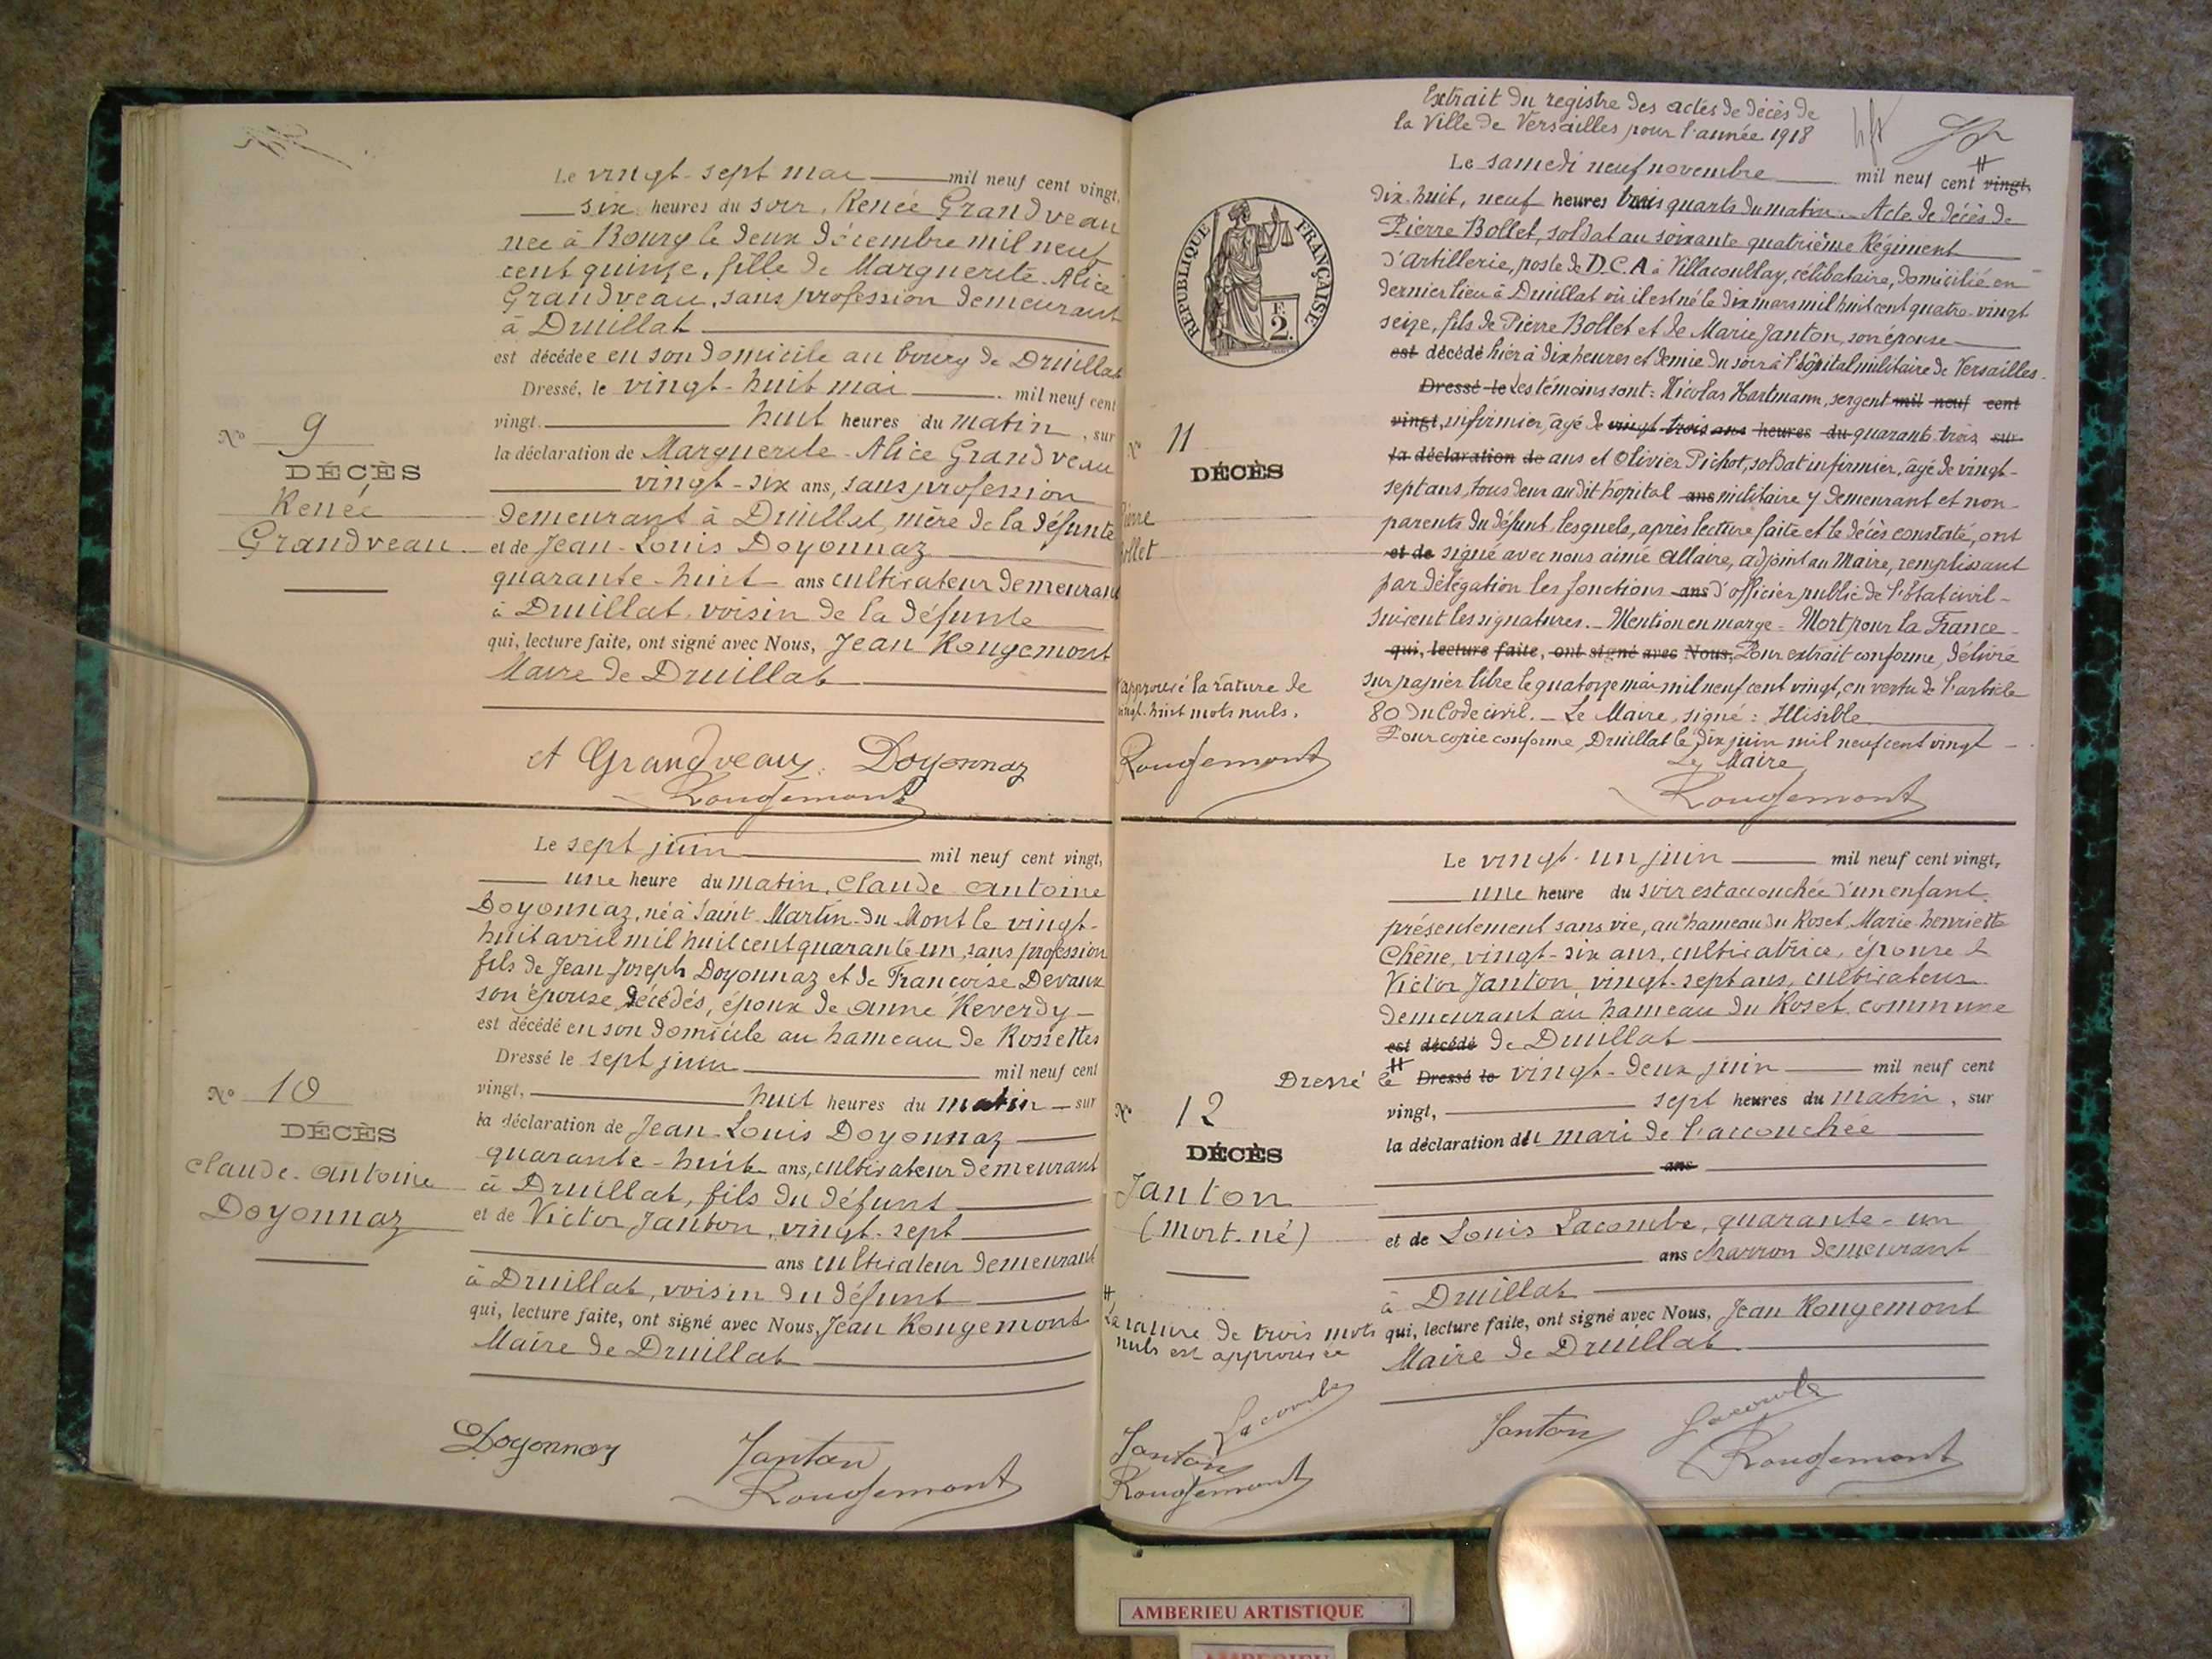 Le vingt-sept mai mil neuf cent vingt,
six heures du soir, Renée Grandveau
née à Bourg le deux décembre mil neuf
cent quinze, fille de Marguerite-Alice
Grandveau, sans profession demeurant
à Druillat
est décédée en son domicile au bourg de Druillat
Dressé, le vingt-huit mai mil neuf cent
vingt. huit heures du matin, sur
la déclaration de Marguerite-Alice Grandveau
vingt-six ans, sans profession
demeurant à Druillat, mère de la défunte
et de Jean-Louis Doyonnaz
quarante-huit ans cultivateur demeurant
à Druillat, voisin de la défunte
qui, lecture faite, ont signé avec Nous, Jean Rougemont
Maire de Druillat
N° 9
DÉCÈS
Renée
Grandveau
A Grandveau Doyonnaz
Rougemont
Le sept juin mil neuf cent vingt,
une heure du matin, Claude-Antoine
Doyonnaz, né à Saint-Martin-du-Mont le vingt-
huit avril mil huit cent quarante un, sans profession
fils de Jean Joseph Doyonnaz et de Françoise Devaux
son épouse décédés, époux de Anne Reverdy
est décédé en son domicile au hameau de Rossettes
Dressé le sept juin mil neuf cent
vingt, huit heures du matin sur
la déclaration de Jean-Louis Doyonnaz
quarante-huit ans, cultivateur demeurant
à Druillat, fils du défunt
et de Victor Janton, vingt-sept
ans cultivateur demeurant
à Druillat, voisin du défunt
qui, lecture faite, ont signé avec Nous, Jean Rougemont
Maire de Druillat
N° 10
DÉCÈS
Claude-Antoine
Doyonnaz
Doyonnaz Janton
Rougemont
Extrait du registre des actes de décès de
la Ville de Versailles pour l'année 1918
Le samedi neuf novembre mil neuf cent vingt,
dix-huit, neuf heures trois quarts du matin. Acte de décès de
Pierre Bollet, soldat au soixante quatrième Régiment
d'artillerie, poste de D.C.A à Villacoublay, célibataire, domicilié en
dernier lieu à Druillat où il est né le dix mars mil huit cent quatre-vingt
seize, fils de Pierre Bollet et de Marie Janton, son épouse
est décédé hier à dix heures et demie du soir à l'hôpital militaire de Versailles.
Dressé le Les témoins sont: Nicolas Hartmann, sergent mil neuf cent
vingt, infirmier, âgé de vingt trois ans heures du quarante trois sur
la déclaration de ans et Olivier Pichot, soldat infirmier, âgé de vingt-
sept ans, tous deux au dit hôpital ans militaire y demeurant et non
parents du défunt, lesquels, après lecture faite et le décès constaté, ont
et de signé avec nous aimé Allaire, adjoint au Maire, remplissant
par délégation les fonctions ans d'officier public de l'État civil-
Suivent les signatures. - Mention en marge = Mort pour la France
qui, lecture faite, ont signé avec Nous, Pour extrait conforme, délivré
sur papier libre le quatorze mai mil neuf cent vingt, en vertu de l'article
80 du Code civil. - Le Maire, signé : Illisible
Pour copie conforme, Druillat le dix juin mil neuf cent vingt
Le Maire
Rougemont
RÉPUBLIQUE FRANÇAISE
F. 2.
N° 11
DÉCÈS
Pierre
Bollet
approuvé la rature de
vingt-huit mots nuls.
Rougemont
Le vingt-un juin mil neuf cent vingt,
une heure du soir est accouchée d'un enfant
présentement sans vie, au hameau du Roset, Marie-henriette
Chêne, vingt-six ans, cultivatrice, épouse d
Victor Janton, vingt-sept ans, cultivateur
demeurant au hameau du Roset commune
est décédé de Druillat
Dressé le Dressé le vingt-deux juin mil neuf cent
vingt, sept heures du matin, sur
la déclaration du mari de l'accouchée
ans
et de Louis Lacombe, quarante-un
ans charron demeurant
à Druillat
qui, lecture faite, ont signé avec Nous, Jean Rougemont
Maire de Druillat
N° 12
DÉCÈS
Janton
(mort-né)
La rature de trois mots
nuls est approuvée
Lacombe
Janton
Rougemont
Janton Lacombe
Rougemont
AMBERIEU ARTISTIQUE
AMBERIEU